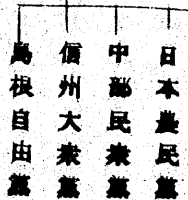 日本農民黨
中部民衆黨
信州大衆黨
島根自由黨